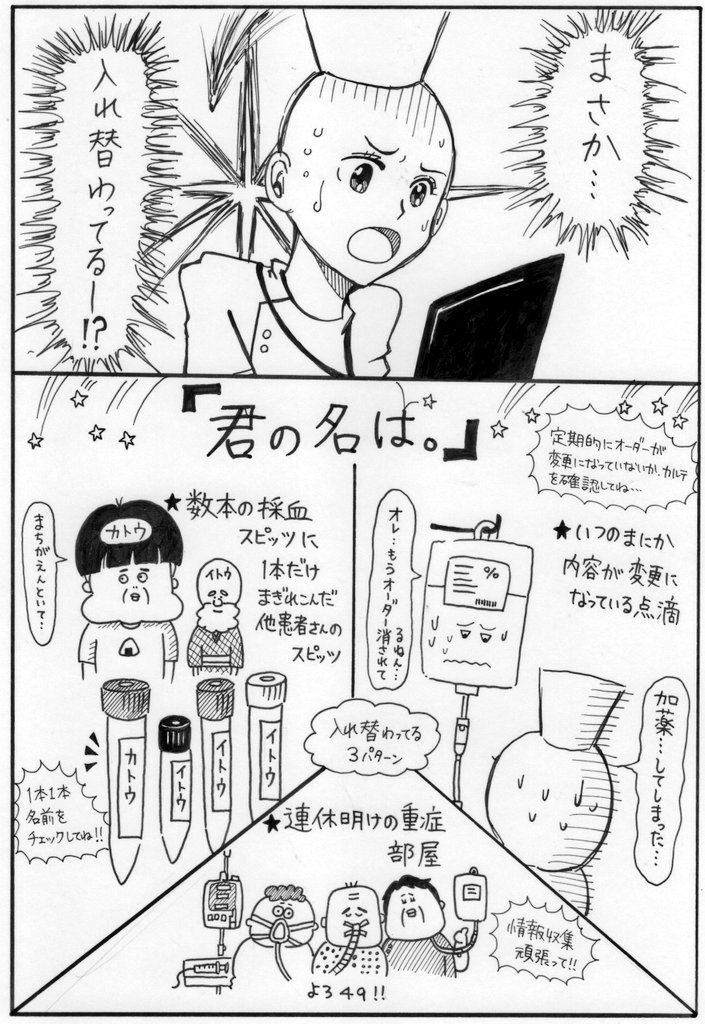 まさか…
入れ替わってるー!?
『君の名は。』
定期的にオーダーが
変更になっていないか、カルテ
を確認してね…
★いつのまにか
内容が変更に
なっている点滴
オレ…もうオーダー消されて
るねん…
%
加薬…してしまった…
★数本の採血
スピッツに
1本だけ
まぎれこんだ
他患者さんの
スピッツ
カトウ
イトウ
まちがえんといて…
カトウ
イトウ
イトウ
イトウ
1本1本
名前を
チェックしてね!!
入れ替わってる
3パターン
★連休明けの重症
部屋
情報収集
頑張って!!
よろ49!!